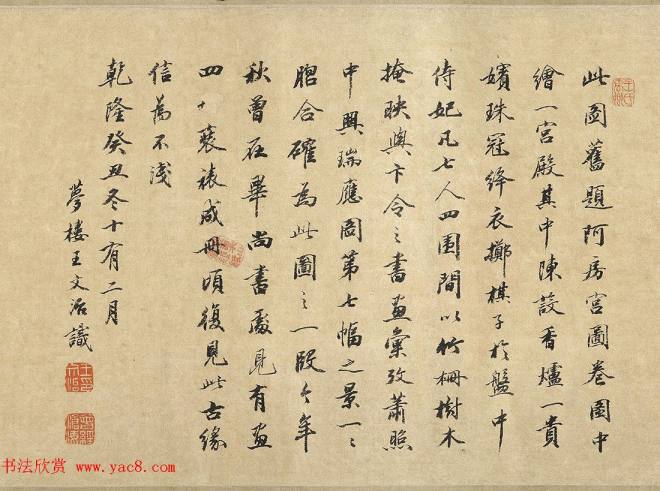 此圖舊題阿房宮圖卷圖中
繪一宮殿其中陳設香爐一貴
嬪珠冠絳衣擲棋子於盤中
侍妃凡七人四圍間以竹柵樹木
掩映與卞令之書畫彙攷蕭照
中興瑞應圖第七幅之景一一
脗合確為此圖之一段今年
秋曾在畢尚書處見有畫
四十裘裱成冊頃復見此古緣
信為不淺
乾隆癸丑冬十有二月
夢樓王文治識
书法欣赏 www.yac8.com